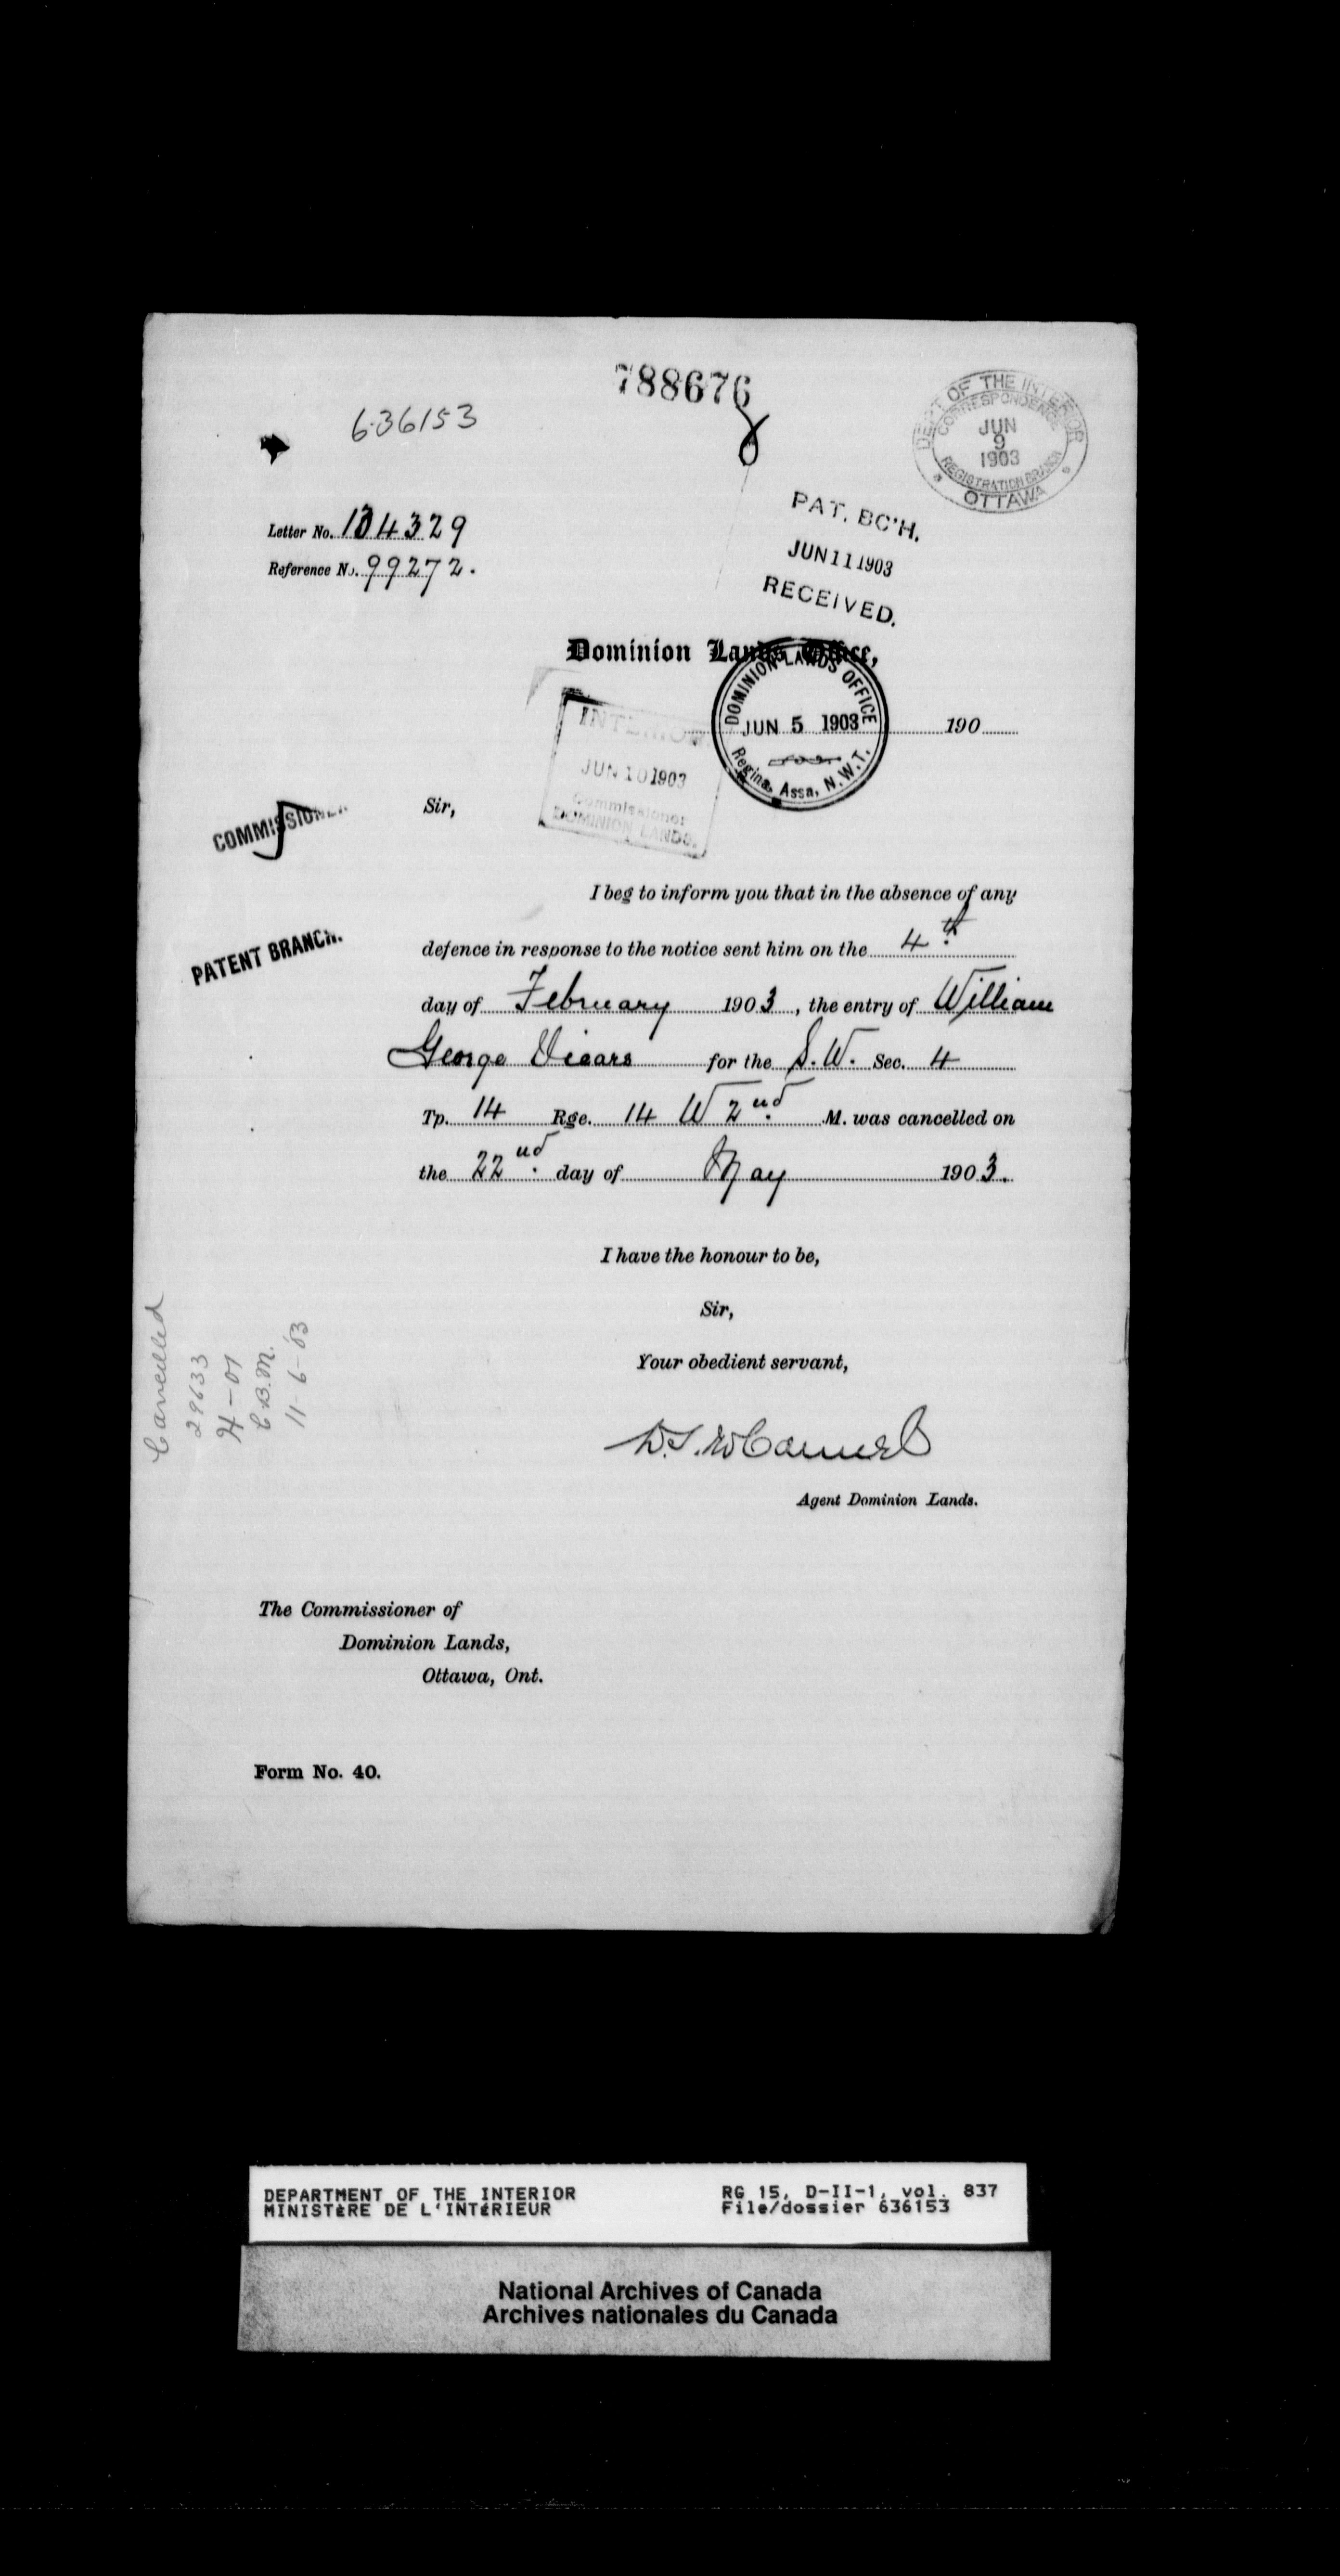 788676
636153
DEPT OF THE INTERIOR
CORRESPONDENCE
JUN
9
1903
REGISTRATION BRANCH
OTTAWA
Letter No. 134329
Reference No. 99272.
PAT. BC'H.
JUN 11 1903
RECEIVED.
Dominion Lands Office,
DOMINION LANDS OFFICE
JUN 5 1903
Regina, Assa, N.W.T.
190
INTERIOR
JUN 10 1903
Commissioner
DOMINION LANDS.
COMMISSIONER
Sir,
I beg to inform you that in the absence of any
PATENT BRANCH.
defence in response to the notice sent him on the 4th
day of February 1903, the entry of William
George Vicars for the S.W. Sec. 4
Tp. 14 Rge. 14 W 2nd M. was cancelled on
the 22nd day of May 1903.
I have the honour to be,
Sir,
Your obedient servant,
Cancelled
29633
C.B.M.
11-6-03
Agent Dominion Lands.
The Commissioner of
Dominion Lands,
Ottawa, Ont.
Form No. 40.
DEPARTMENT OF THE INTERIOR
MINISTÈRE DE L'INTÉRIEUR
RG 15, D-II-1, vol. 837
File/dossier 636153
National Archives of Canada
Archives nationales du Canada